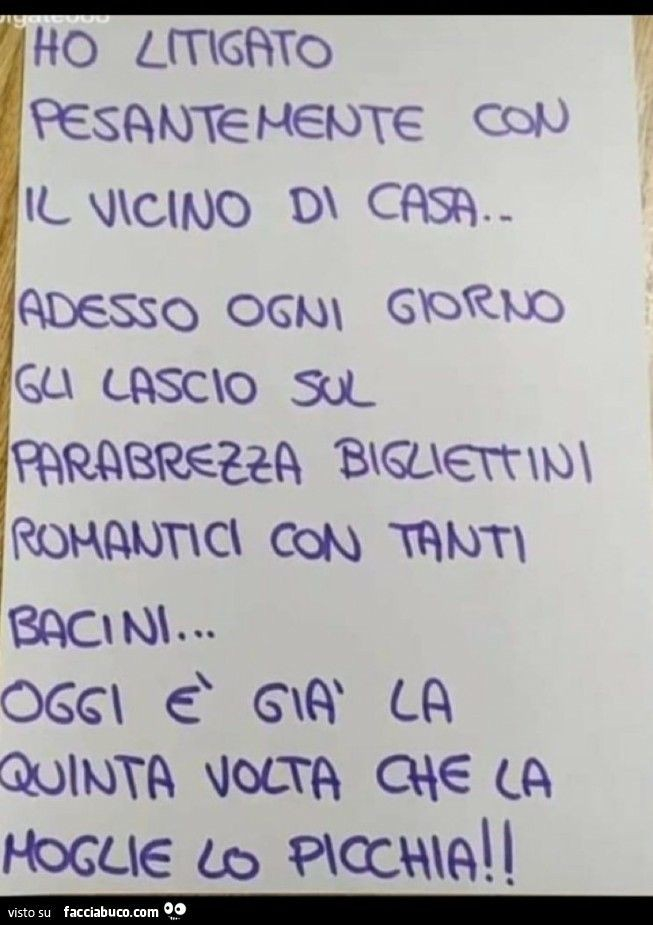 HO LITIGATO
PESANTEMENTE CON
IL VICINO DI CASA..
ADESSO OGNI GIORNO
GLI LASCIO SUL
PARABREZZA BIGLIETTINI
ROMANTICI CON TANTI
BACINI...
OGGI È GIA' LA
QUINTA VOLTA CHE LA
MOGLIE LO PICCHIA!!
visto su facciabuco.com